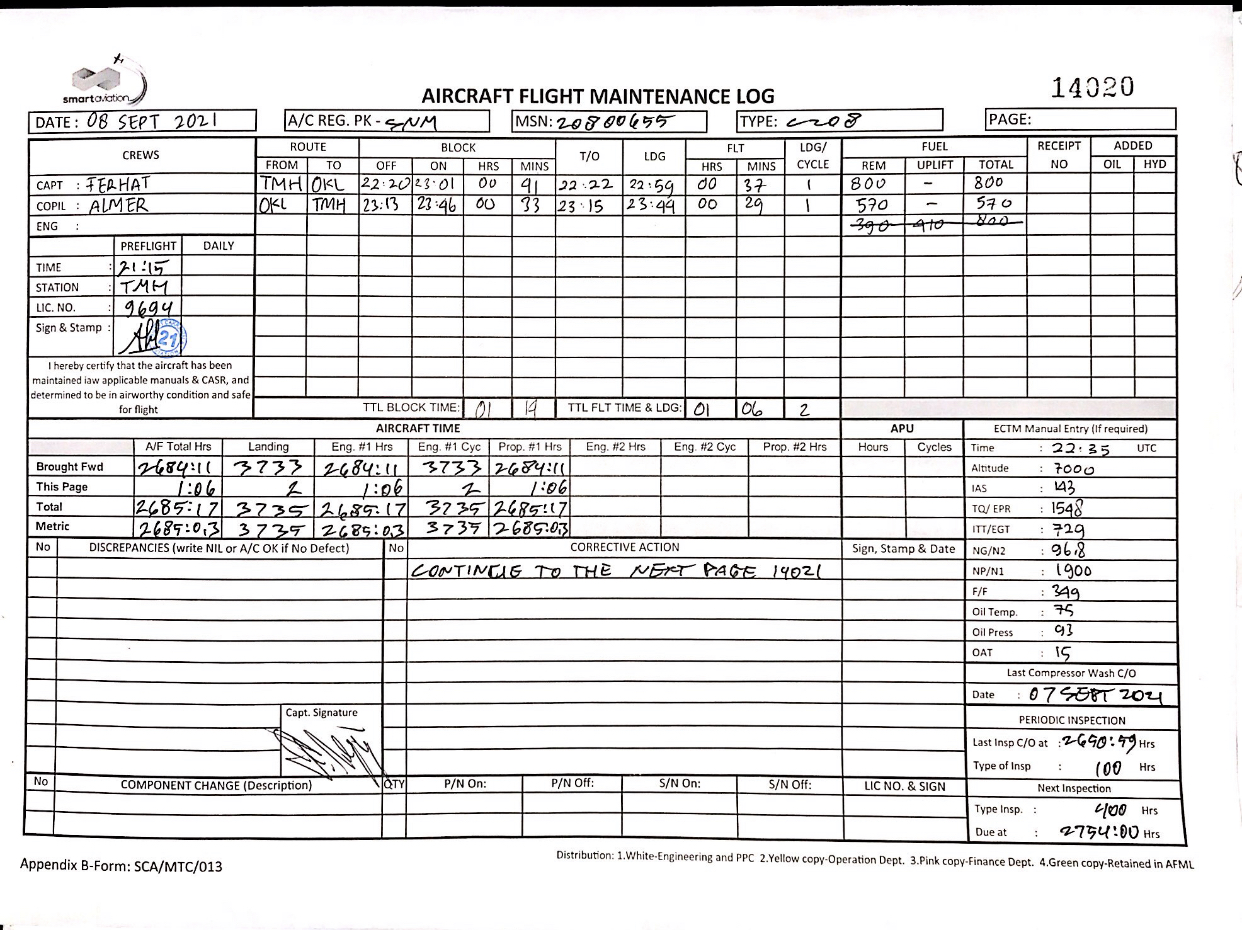 smartaviation
14020
AIRCRAFT FLIGHT MAINTENANCE LOG
DATE : 08 SEPT 2021 A/C REG. PK - SNM MSN: 20800655 TYPE: C208 PAGE:
CREWS ROUTE BLOCK T/O LDG FLT LDG/ CYCLE FUEL RECEIPT NO ADDED
FROM TO OFF ON HRS MINS HRS MINS REM UPLIFT TOTAL OIL HYD
CAPT : FERHAT TMH OKL 22:20 23:01 00 41 22:22 22:59 00 37 1 800 - 800
COPIL : ALMER OKL TMH 23:13 23:46 00 33 23:15 23:44 00 29 1 570 - 570
ENG : 390 410 800
PREFLIGHT DAILY
TIME : 21:15
STATION : TMH
LIC. NO. : 9694
Sign & Stamp : 21
I hereby certify that the aircraft has been
maintained iaw applicable manuals & CASR, and
determined to be in airworthy condition and safe
for flight
TTL BLOCK TIME: 01 14 TTL FLT TIME & LDG: 01 06 2
AIRCRAFT TIME APU ECTM Manual Entry (If required)
A/F Total Hrs Landing Eng. #1 Hrs Eng. #1 Cyc Prop. #1 Hrs Eng. #2 Hrs Eng. #2 Cyc Prop. #2 Hrs Hours Cycles
Brought Fwd 2684:11 3733 2684:11 3733 2684:11
This Page 1:06 2 1:06 2 1:06
Total 2685:17 3735 2685:17 3735 2685:17
Metric 2685:0,3 3735 2685:0,3 3735 2685:0,3
Time : 22:35 UTC
Altitude : 7000
IAS : 143
TQ/ EPR : 1548
ITT/EGT : 729
NG/N2 : 96,8
NP/N1 : 1900
F/F : 349
Oil Temp. : 75
Oil Press : 93
OAT : 15
No DISCREPANCIES (write NIL or A/C OK if No Defect) No CORRECTIVE ACTION Sign, Stamp & Date
CONTINUE TO THE NEXT PAGE 14021
Last Compressor Wash C/O
Date : 07 SEPT 2021
Capt. Signature
PERIODIC INSPECTION
Last Insp C/O at : Hrs
Type of Insp : 100 Hrs
No COMPONENT CHANGE (Description) QTY P/N On: P/N Off: S/N On: S/N Off: LIC NO. & SIGN
Next Inspection
Type Insp. : 400 Hrs
Due at : 2754:00 Hrs
Appendix B-Form: SCA/MTC/013
Distribution: 1.White-Engineering and PPC 2.Yellow copy-Operation Dept. 3.Pink copy-Finance Dept. 4.Green copy-Retained in AFML